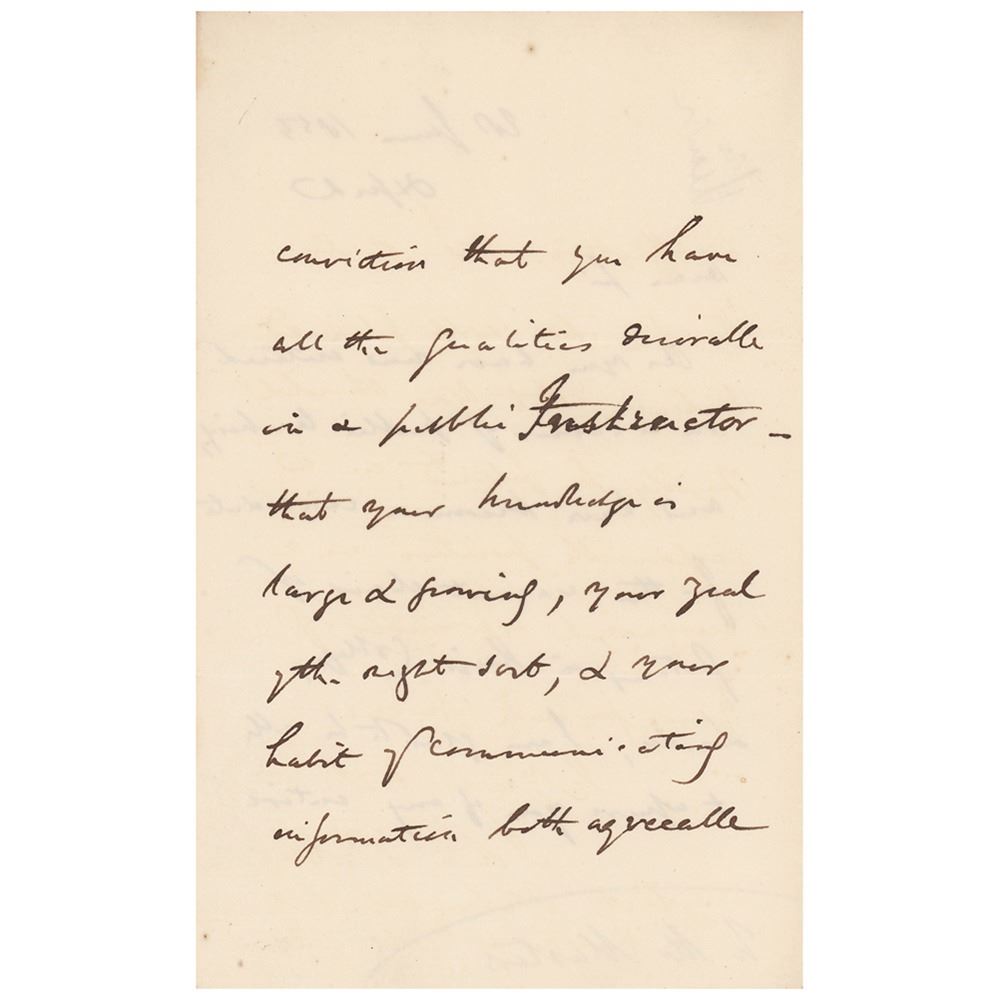 conviction that you have
all the qualities desirable
in a public Instructor –
that your knowledge is
large & growing, your zeal
of the right sort, & your
habit of communicating
information both agreeable